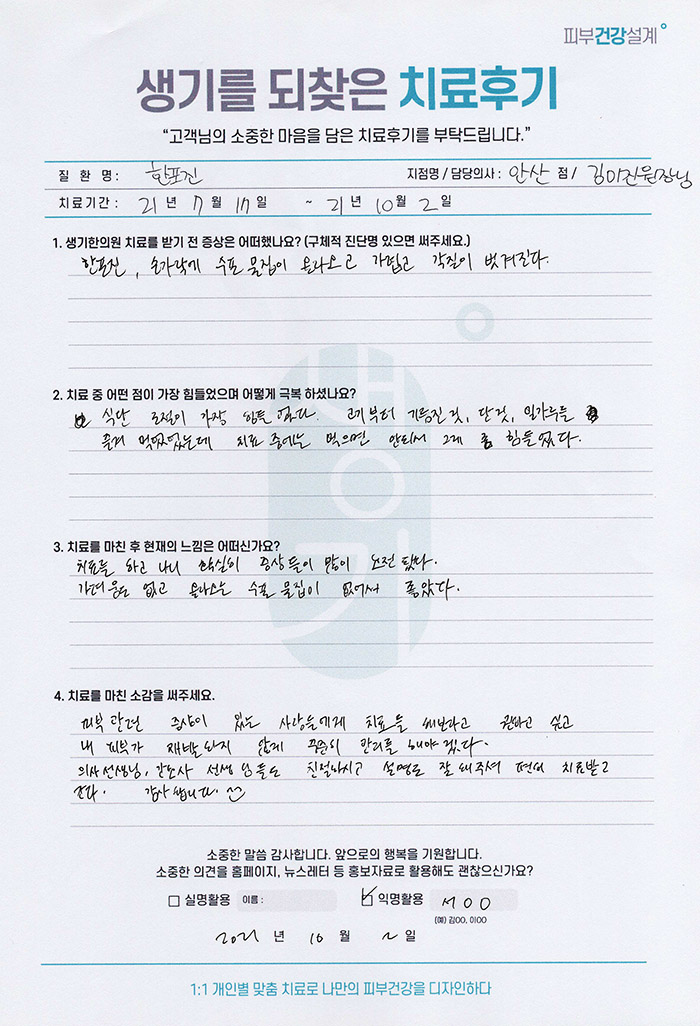 피부건강설계
생기를 되찾은 치료후기
“고객님의 소중한 마음을 담은 치료후기를 부탁드립니다.”
질 환 명 : 한포진 지점명 / 담당의사 : 안산 점 / 김미진원장님
치료기간 : 21 년 7 월 17 일 ~ 21 년 10 월 2 일
1. 생기한의원 치료를 받기 전 증상은 어떠했나요? (구체적 진단명 있으면 써주세요.)
한포진, 손가락에 수포 물집이 올라오고 가렵고 각질이 벗겨진다.
2. 치료 중 어떤 점이 가장 힘들었으며 어떻게 극복 하셨나요?
식단 조절이 가장 힘들었다. 고기부터 기름진 것, 단것, 밀가루를
즐겨 먹었었는데 치료 중에는 먹으면 안되서 그게 좀 힘들었다.
3. 치료를 마친 후 현재의 느낌은 어떠신가요?
치료를 하고 나니 확실히 증상들이 많이 호전 됐다.
가려움도 없고 올라오는 수포 물집이 없어서 좋았다.
4. 치료를 마친 소감을 써주세요.
피부 관련 증상이 있는 사람들에게 치료를 해보라고 권하고 싶고
내 피부가 재발하지 않게 꾸준히 관리를 해야 겠다.
의사선생님, 간호사 선생님들도 친절하시고 설명도 잘 해주셔 편히 치료받고
간다. 감사합니다.
소중한 말씀 감사합니다. 앞으로의 행복을 기원합니다.
소중한 의견을 홈페이지, 뉴스레터 등 홍보자료로 활용해도 괜찮으신가요?
실명활용 이름 : 익명활용 서OO
(예) 김OO, 이OO
2021 년 10 월 2 일
1:1 개인별 맞춤 치료로 나만의 피부건강을 디자인하다
생기